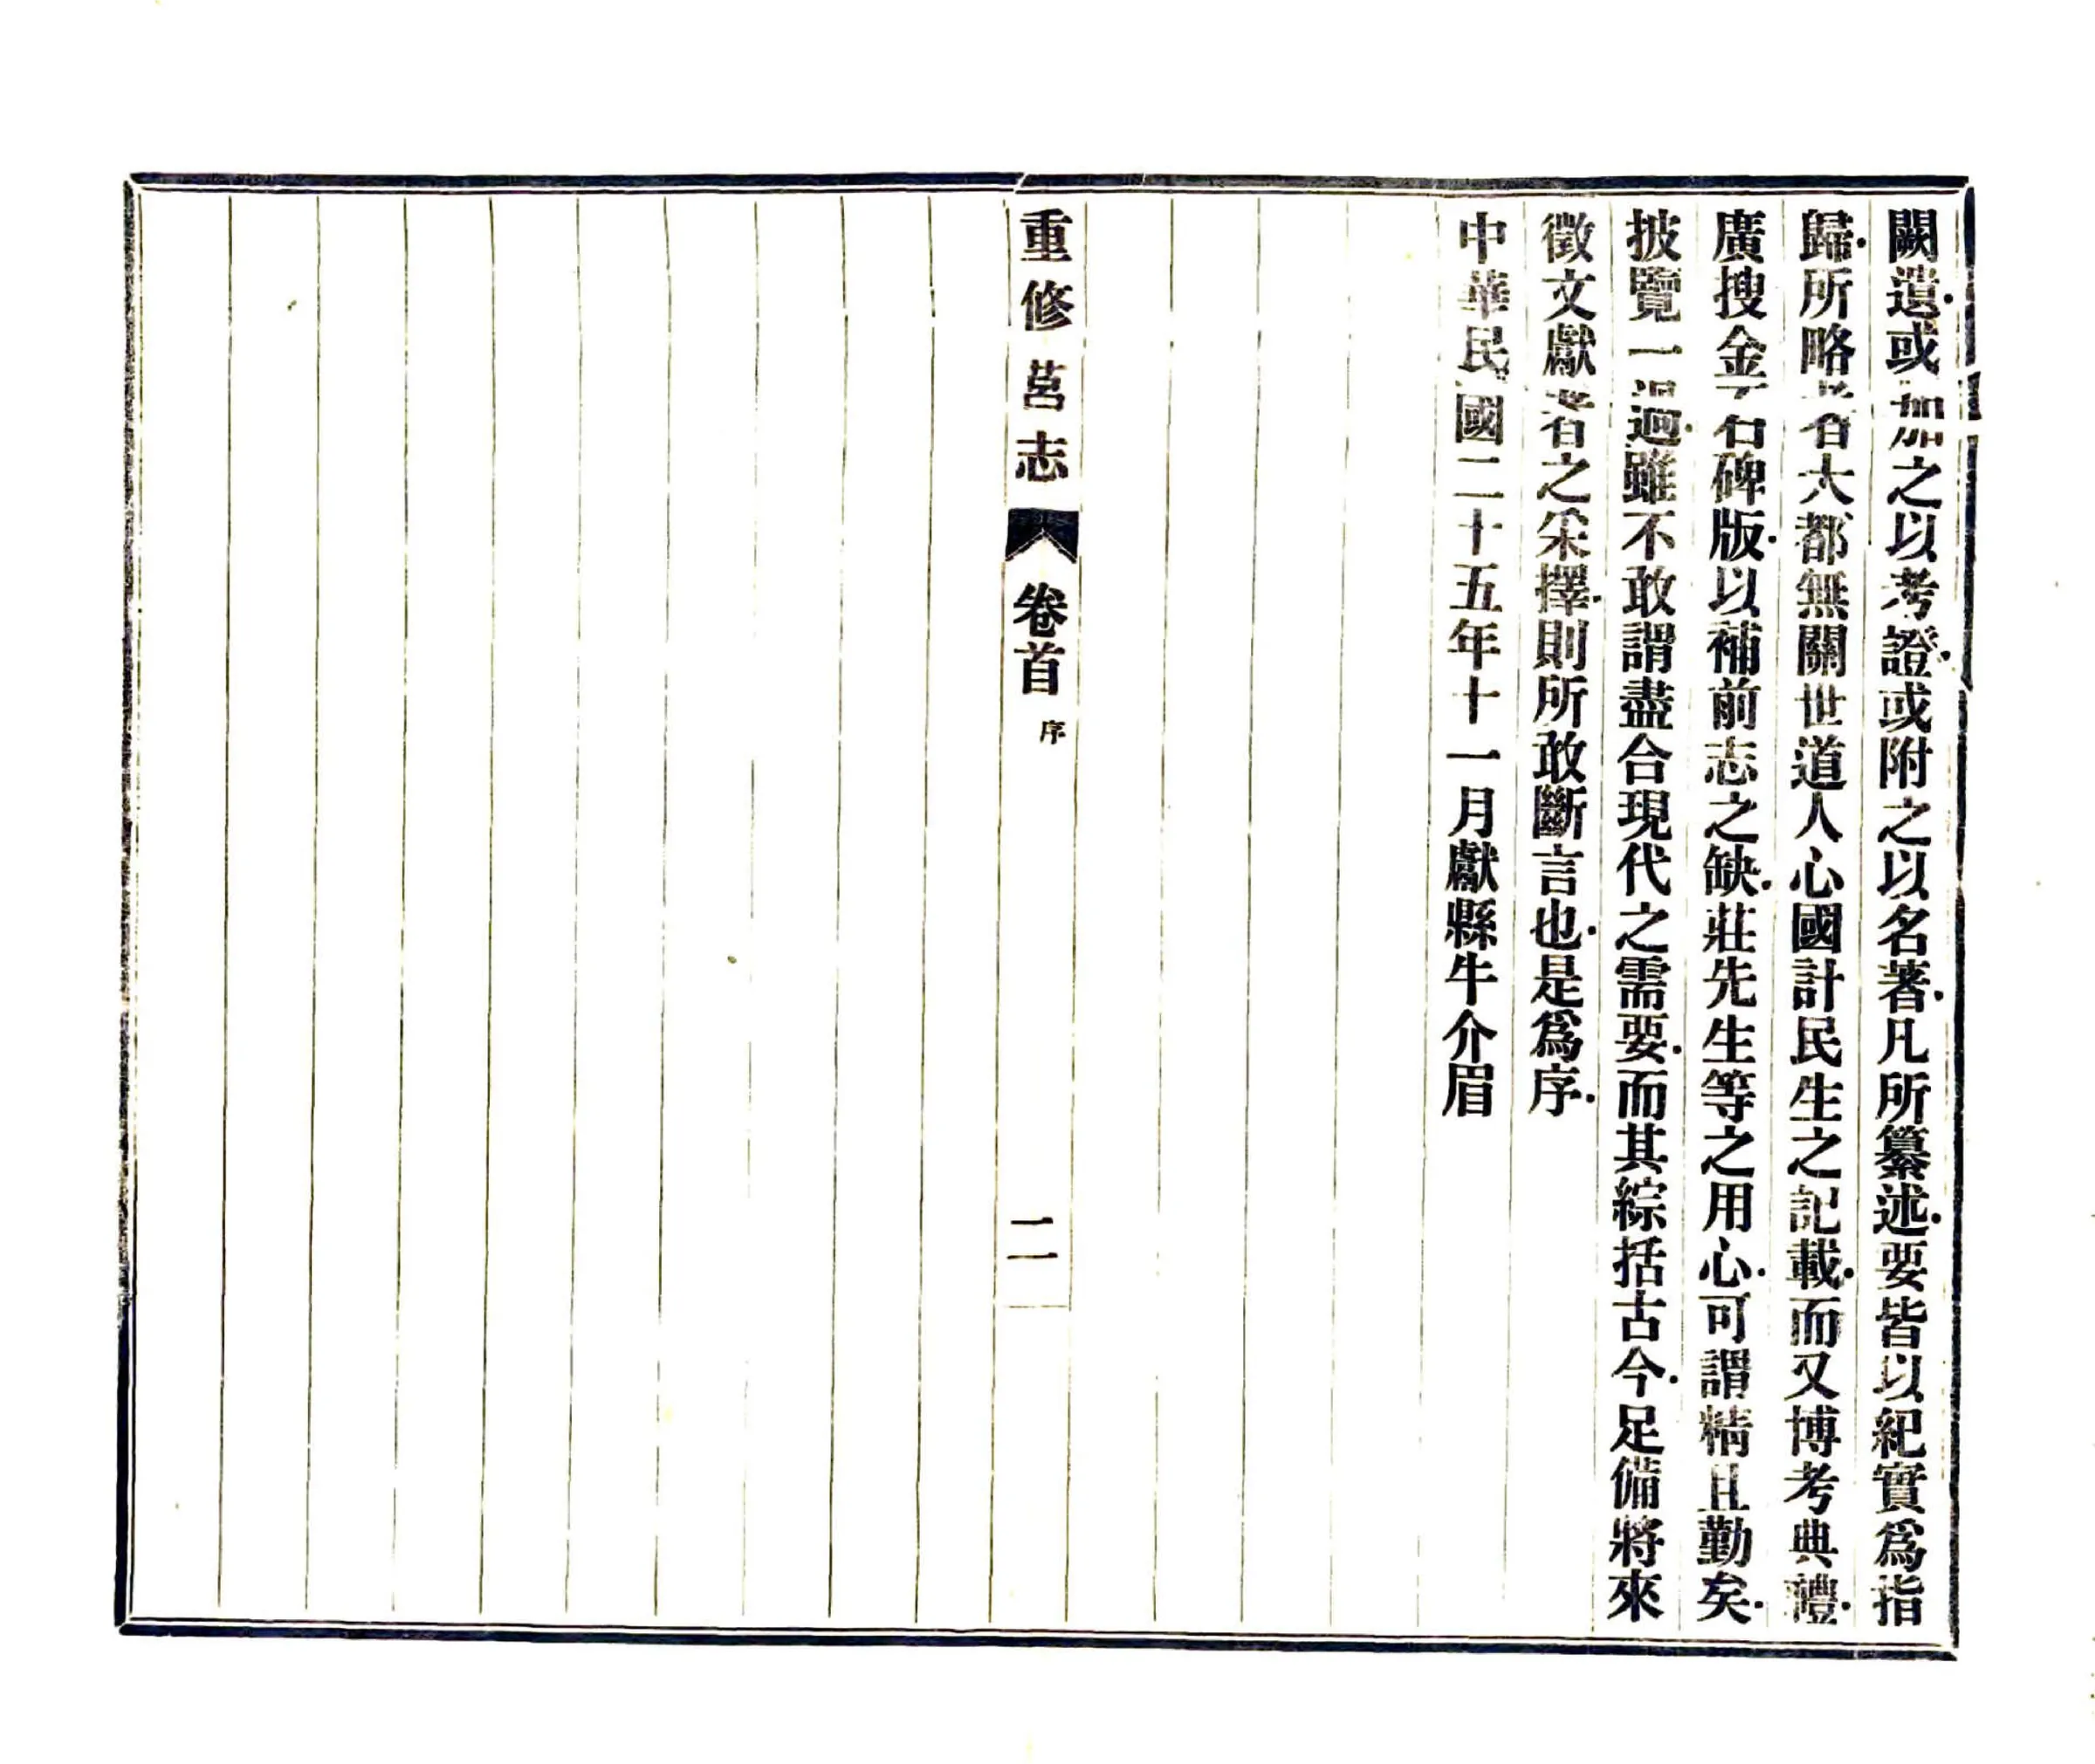 闕遺．或加之以考證．或附之以名著．凡所纂述．要皆以紀實爲指
歸．所略者大都無關世道人心國計民生之記載．而又博考典禮．
廣搜金石碑版．以補前志之缺．莊先生等之用心．可謂精且勤矣．
披覽一過．雖不敢謂盡合現代之需要．而其綜括古今．足備將來
徵文獻者之采擇．則所敢斷言也．是爲序．
中華民國二十五年十一月獻縣牛介眉
重修莒志 卷首 序 二